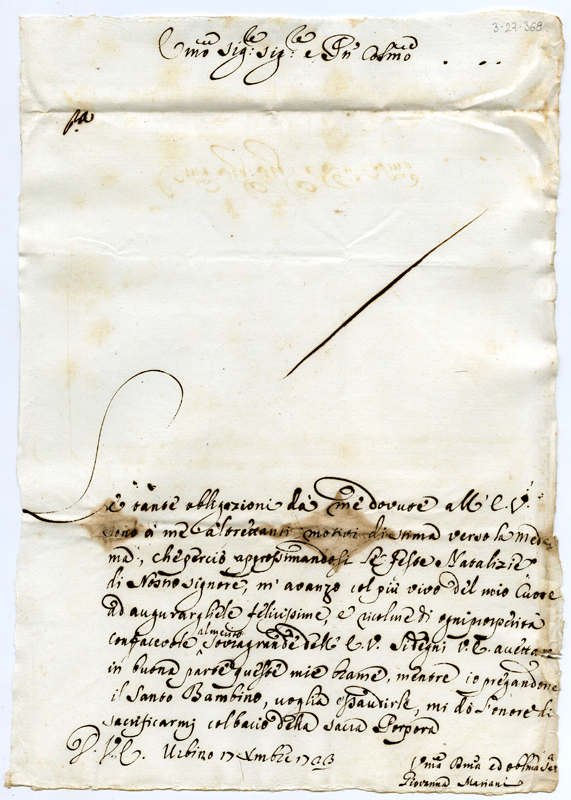 3-27-368
Em͞o Sig:re Sig:re e P͞ne Col͞mo
Le tante obligazioni da me dovute all' E. V.
sono a me altrettanti motivi di stima verso la mede-
ma, che perciò approssimandosi le feste Natalizie
di Nostro Signore, m' avanzo col più vivo del mio Cuore
ad augurarghele felicissime, e ricolme di ogni prosperità
confacevole al merito sovragrande dell' E. V. Si degni V. E. accettar
in buona parte queste mie brame, mentre io pregandone
il Santo Bambino, voglia essaudirle, mi dò l'onore di
sacrificarmi col bacio della Sacra Porpora
D. V. E. Urbino 17 Xmbre
Giovanna Mariani